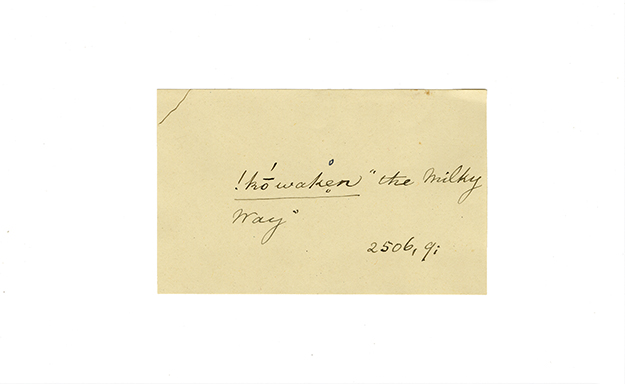 !kṓwaken̥ "the Milky
Way"
2506, 9;